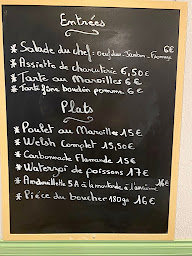 Entrées
6€
* Salade du chef : Oeuf dur - Jambon - Fromage
* Assiette de charcuterie 6,50€
* Tarte au Maroilles 6€
* Tarte fine boudin pomme 6€
Plats
* Poulet au Maroilles 15€
* Welsh Complet 15,50€
* Carbonnade Flamande 15€
* Waterzoï de poissons 17€
* Andouillette 5A à la moutarde à l'ancienne 16€
* Pièce du boucher 180gr 16€